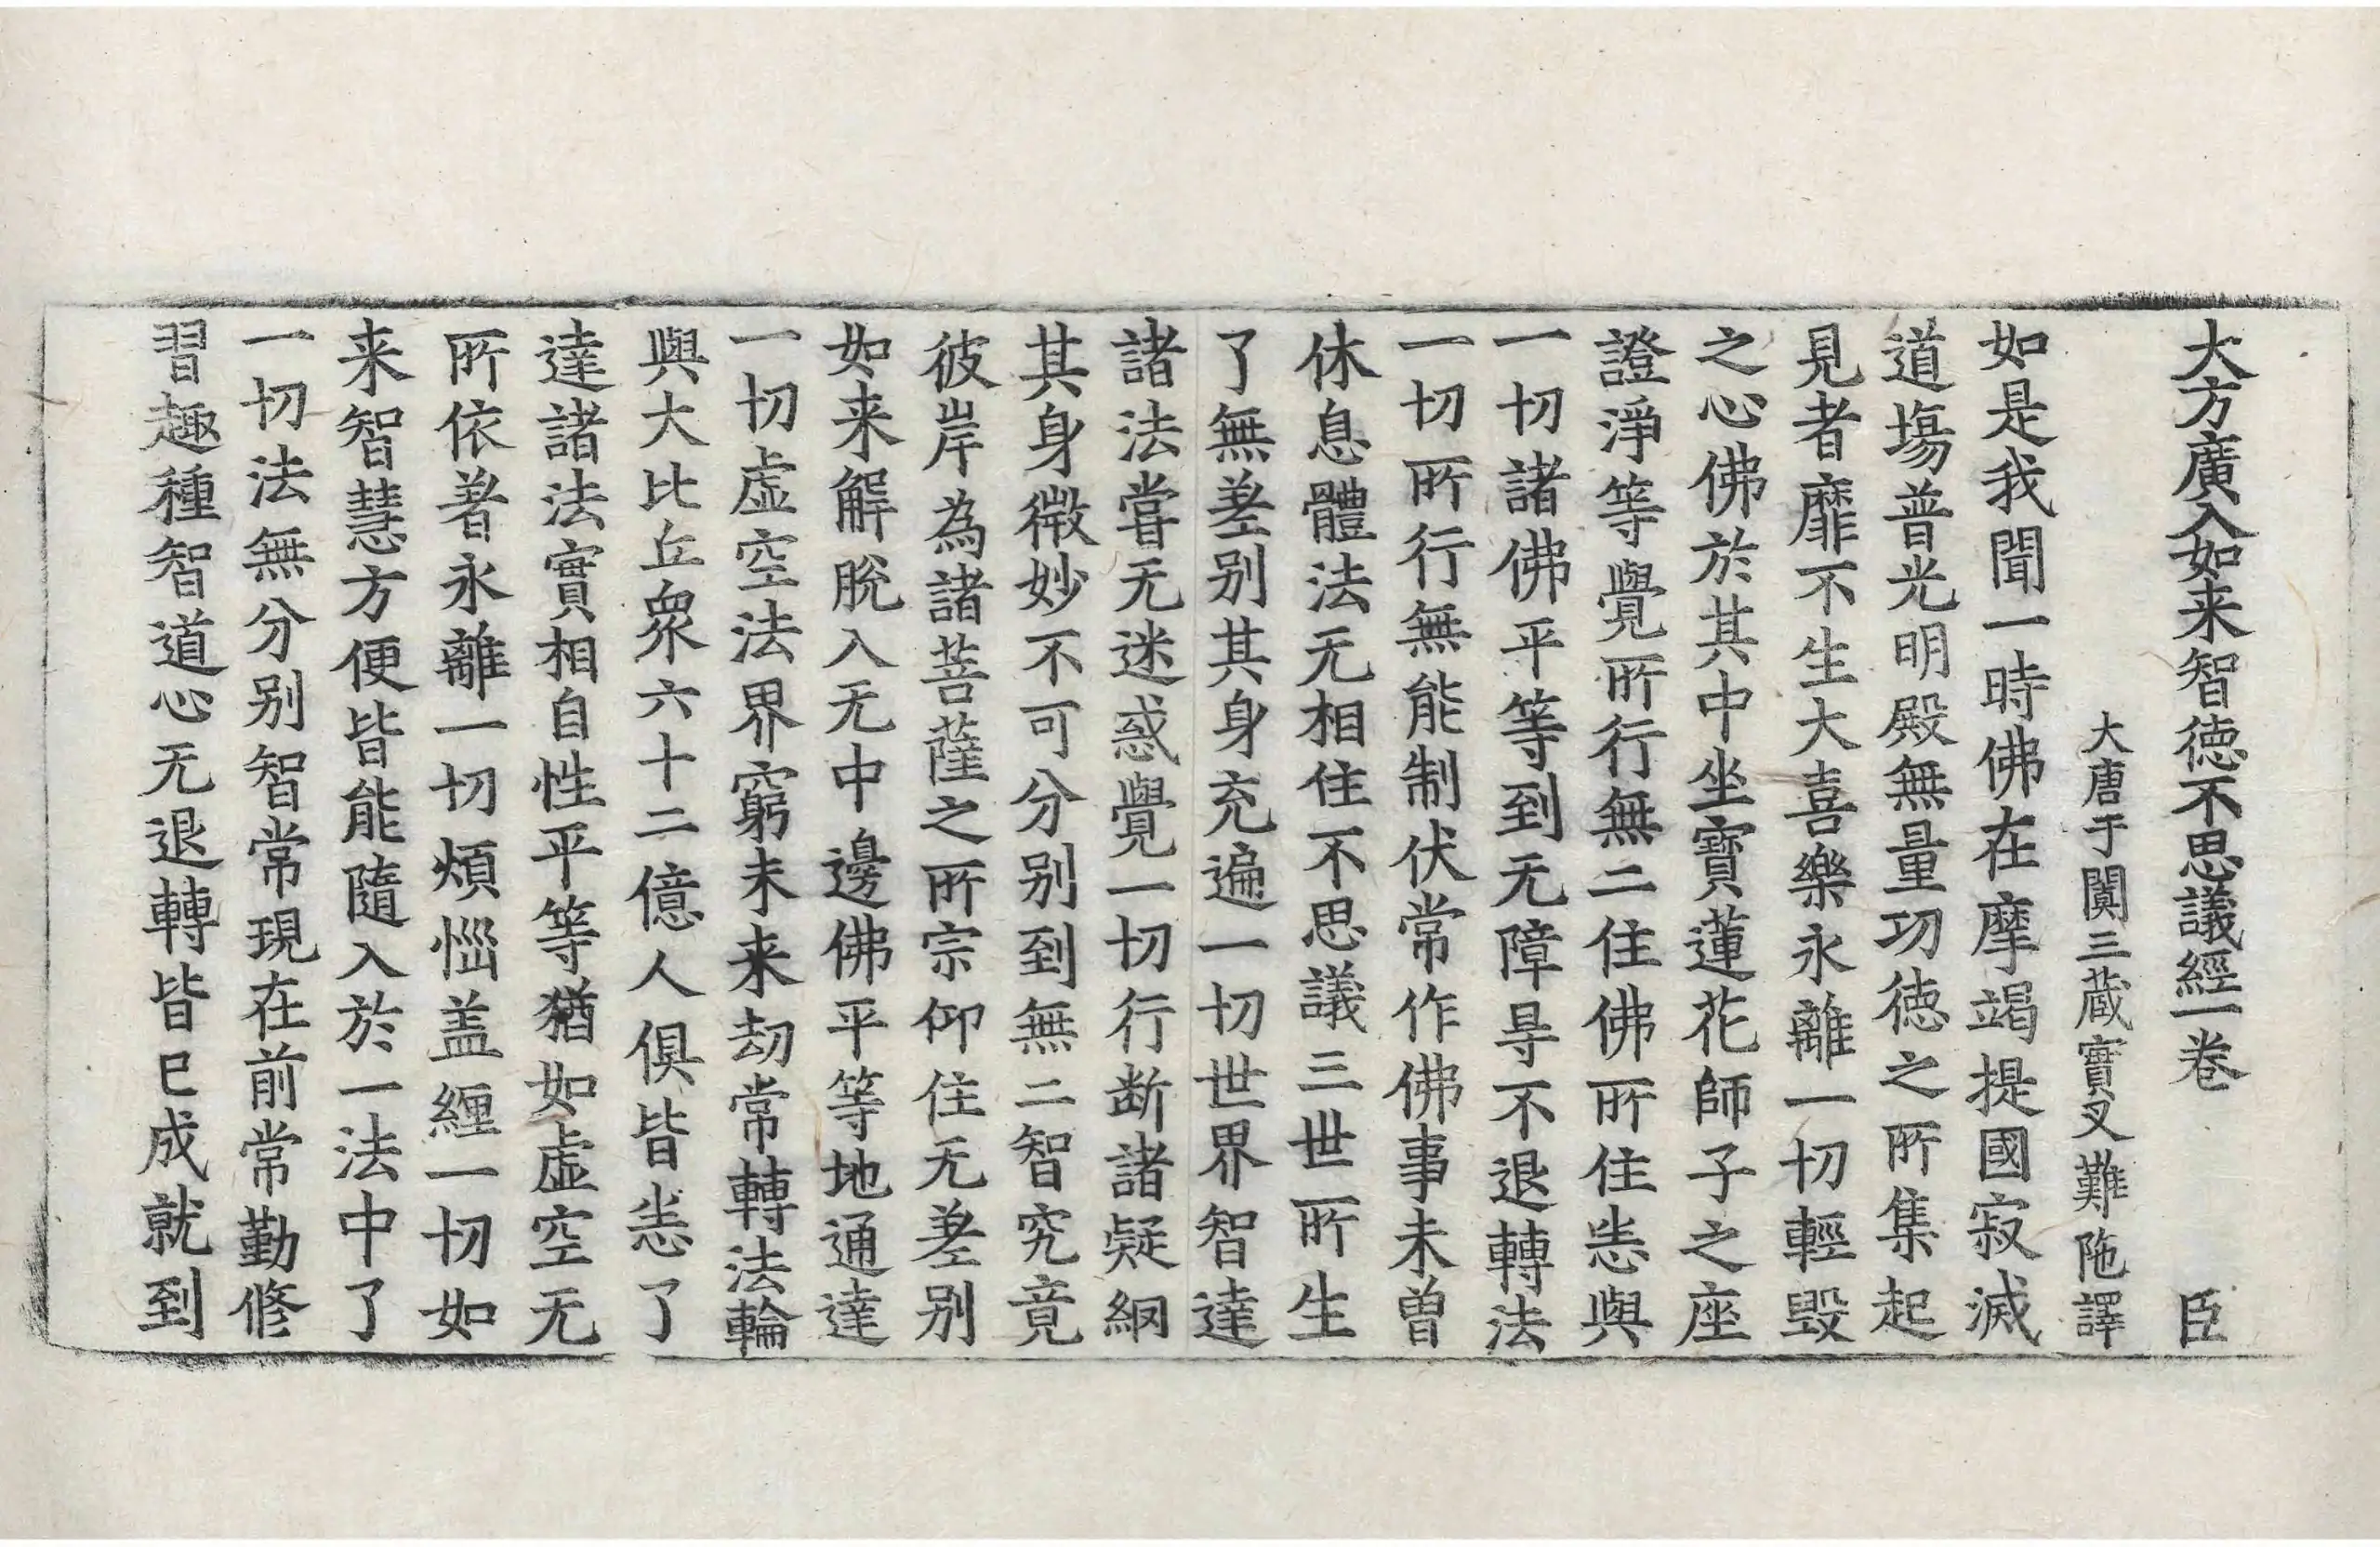 大方廣入如来智徳不思議經一卷　臣
大唐于闐三蔵實叉難陁譯
如是我聞一時佛在摩竭提國寂滅
道場普光明殿無量功徳之所集起
見者靡不生大喜樂永離一切輕毀
之心佛於其中坐寶蓮花師子之座
證淨等覺所行無二住佛所住悉與
一切諸佛平等到无障㝵不退轉法
一切所行無能制伏常作佛事未曽
休息體法无相住不思議三世所生
了無差别其身充遍一切世界智達
諸法甞无迷惑覺一切行断諸疑網
其身微妙不可分别到無二智究竟
彼岸為諸菩薩之所宗仰住无差别
如来解脫入无中邊佛平等地通達
一切虚空法界窮未来劫常轉法輪
與大比丘衆六十二億人俱皆悉了
達諸法實相自性平等猶如虚空无
所依著永離一切煩惱盖纒一切如
来智慧方便皆能隨入於一法中了
一切法無分别智常現在前常勤修
習趣種智道心无退轉皆已成就到